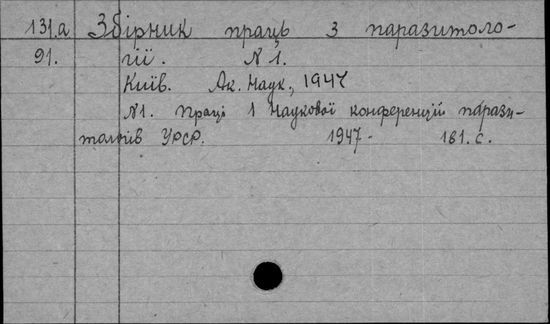 131.a Збірник праць з паразитоло-
91. гії. N 1.
Київ. Ак. Наук., 1947
N1. Праці 1 Наукової конференції парази-
тологів УРСР. 1947- 181. с.